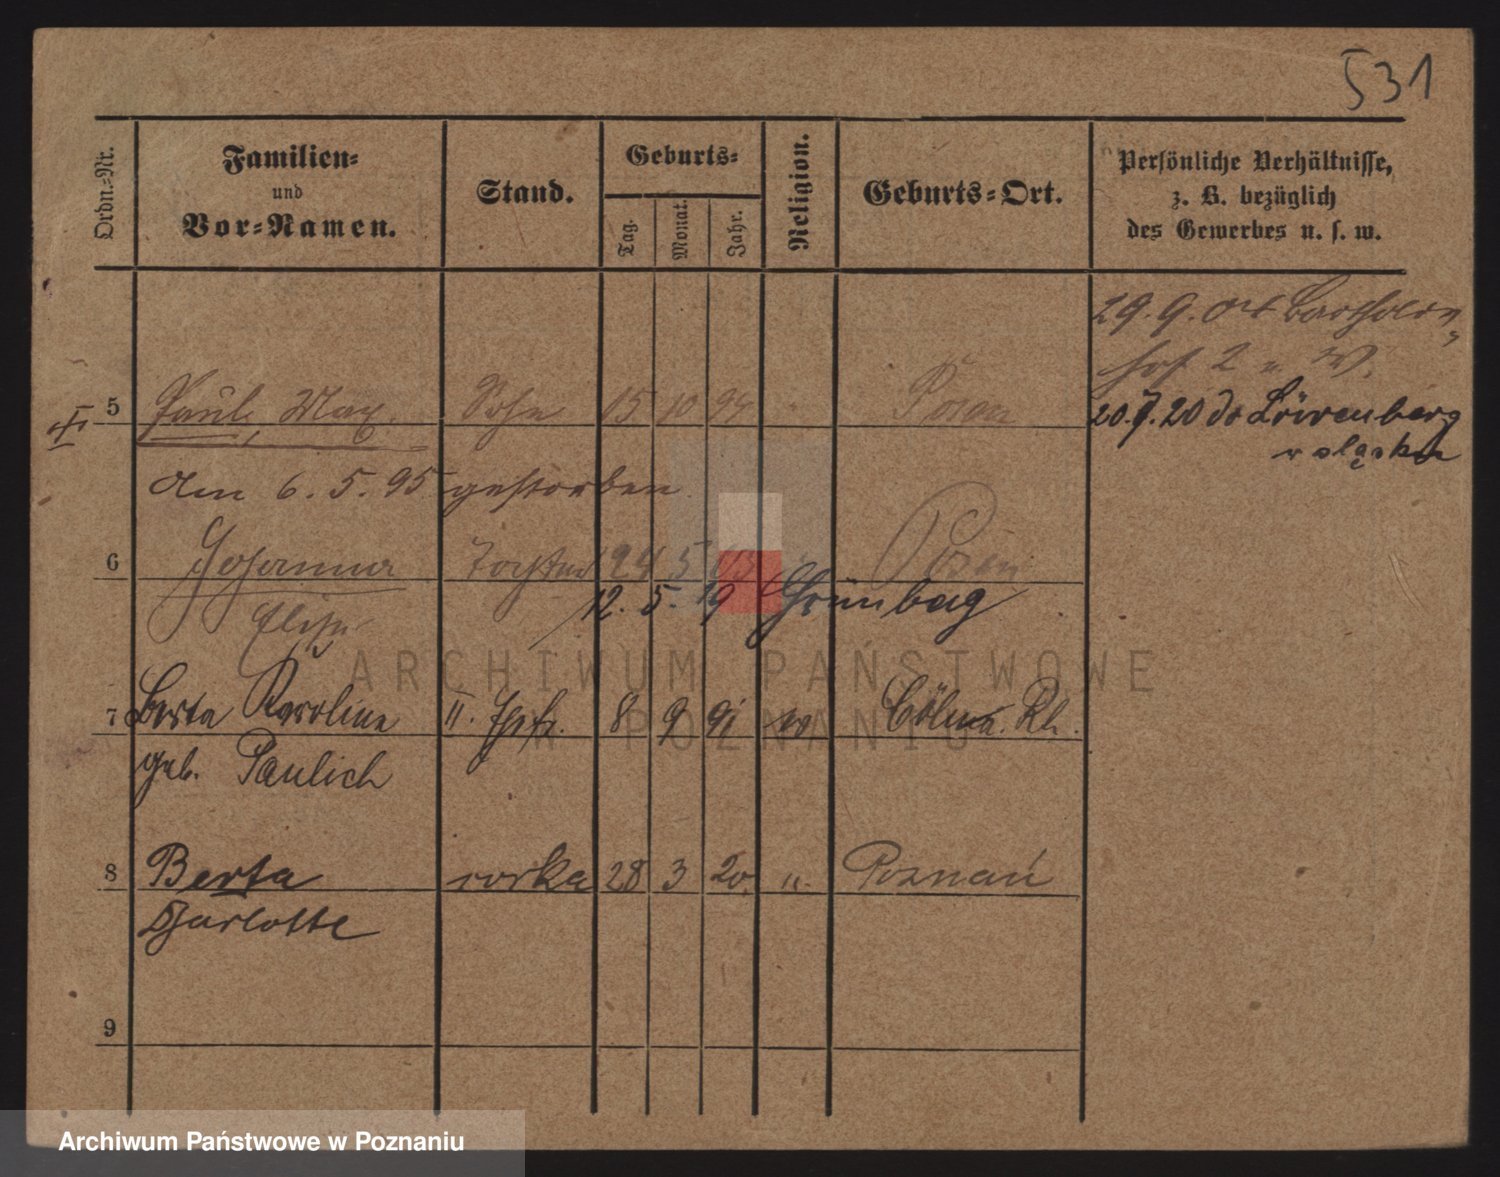 531
Ordn.-Nr.
Familien-
und
Vor-Namen.
Stand.
Geburts-
Tag.
Monat.
Jahr.
Religion.
Geburts-Ort.
Persönliche Verhältnisse,
z. B. bezüglich
des Gewerbes u. s. w.
29. 9. 04
hof 2 u. W.
5 Paul, Max Sohn 15 10 94 " Posen
20. 7. 20 do Löwenberg
am 6. 5. 95 gestorben
6 Johanna Tochter 24 5 03 " Posen
Elise 12. 5. 19
7 Berta Karoline II. 8 9 91 Cöln a. Rh.
geb. Paulich
8 Berta corka 28 3 20 " Poznań
Charlotte
9
ARCHIWUM PAŃSTWOWE
W POZNANIU
Archiwum Państwowe w Poznaniu